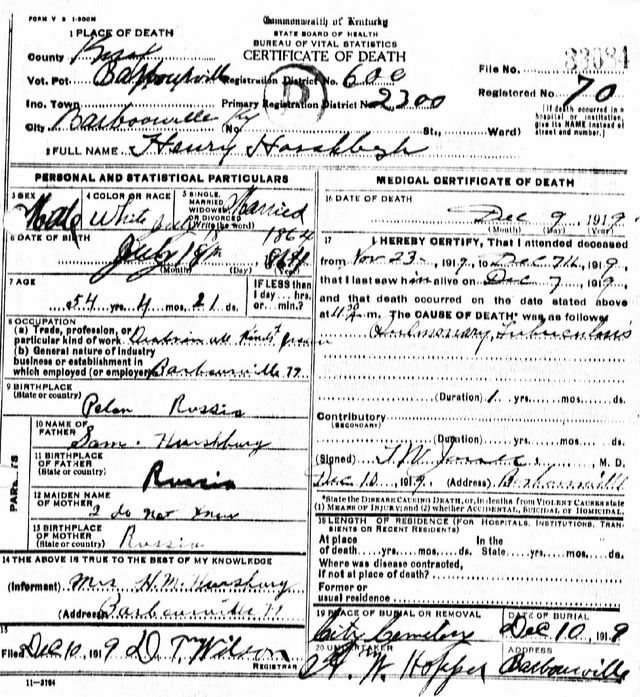 FORM V S 1-500M
Commonwealth of Kentucky
STATE BOARD OF HEALTH
BUREAU OF VITAL STATISTICS
CERTIFICATE OF DEATH
1 PLACE OF DEATH
County Knox
Vot. Pct. Barbourville Registration District No. 600
File No. 33084
Inc. Town Primary Registration District No. 2300
Registered No. 70
City Barbourville Ky (No. St., Ward)
(If death occurred in a hospital or institution, give its NAME instead of street and number.)
2 FULL NAME Henry
PERSONAL AND STATISTICAL PARTICULARS
3 SEX Male
4 COLOR OR RACE White
5 SINGLE, MARRIED, WIDOWED OR DIVORCED (Write the word) Married
6 DATE OF BIRTH July 18th 1864
(Month) (Day) (Year)
7 AGE 54 yrs. 4 mos. 21 ds.
IF LESS than 1 day... hrs. or... min.?
8 OCCUPATION
(a) Trade, profession, or particular kind of work
(b) General nature of industry
business or establishment in
which employed (or employer) Barbourville
9 BIRTHPLACE
(State or country) Russia
PARENTS
10 NAME OF FATHER Sam.
11 BIRTHPLACE OF FATHER (State or country) Russia
12 MAIDEN NAME OF MOTHER I do not know
13 BIRTHPLACE OF MOTHER (State or country) Russia
14 THE ABOVE IS TRUE TO THE BEST OF MY KNOWLEDGE
(Informant) Mrs H.M.
(Address) Barbourville
15
Filed Dec 10, 1919 D T Wilson
REGISTRAR
11-3184
MEDICAL CERTIFICATE OF DEATH
16 DATE OF DEATH
Dec 9, 1919
(Month) (Day) (Year)
17 I HEREBY CERTIFY, That I attended deceased
from Nov 23, 1919, to Dec 7th, 1919,
that I last saw him alive on Dec 7, 1919,
and that death occurred on the date stated above
at m. The CAUSE OF DEATH* was as follows
Pulmonary Tuberculosis
(Duration) 1 yrs. mos. ds.
Contributory
(SECONDARY)
(Duration) yrs. mos. ds.
(Signed) M. D.
Dec 10, 1919. (Address) Barbourville
*State the DISEASE CAUSING DEATH, or, in deaths from VIOLENT CAUSES state
(1) MEANS OF INJURY; and (2) whether ACCIDENTAL, SUICIDAL or HOMICIDAL.
18 LENGTH OF RESIDENCE (FOR HOSPITALS, INSTITUTIONS, TRANSIENTS OR RECENT RESIDENTS)
At place of death yrs. mos. ds. In the State yrs. mos. ds.
Where was disease contracted,
if not at place of death?
Former or
usual residence
19 PLACE OF BURIAL OR REMOVAL City Cemetery
DATE OF BURIAL Dec 10, 1919
20 UNDERTAKER H. W. Hopper
ADDRESS Barbourville